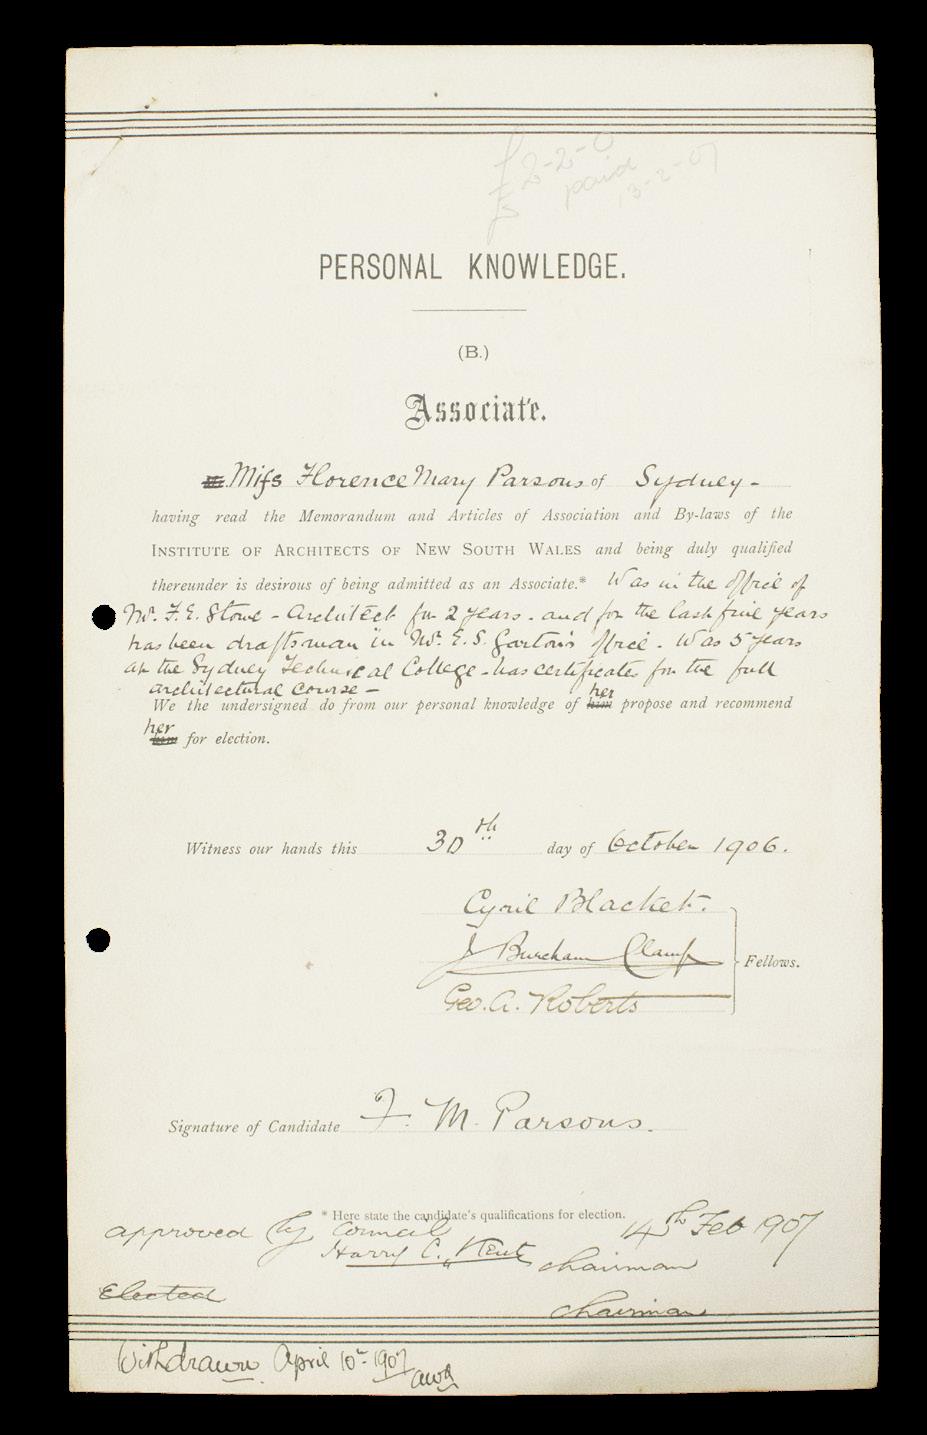 £2-2-0
paid
13-2-07
PERSONAL KNOWLEDGE.
(B.)
Associate.
Miss Florence Mary Parsons of Sydney -
having read the Memorandum and Articles of Association and By-laws of the
INSTITUTE OF ARCHITECTS OF NEW SOUTH WALES and being duly qualified
thereunder is desirous of being admitted as an Associate.* Was in the office of
Mr. F. E. Stowe - Architect for 2 years - and for the last five years
has been draftsman in Mr. E. S. Garton's office - Was 5 years
at the Sydney Technical College - has certificates for the full
architectural course -
We the undersigned do from our personal knowledge of him her propose and recommend
him her for election.
Witness our hands this 30th day of October 1906.
Cyril Blacket.
J Burcham Clamp
Fellows.
Geo. A. Roberts
Signature of Candidate F. M. Parsons.
* Here state the candidate's qualifications for election.
approved by Council 14th Feb 1907
Harry C. Kent Chairman
Elected
Chairman
Withdrawn April 10th 1907